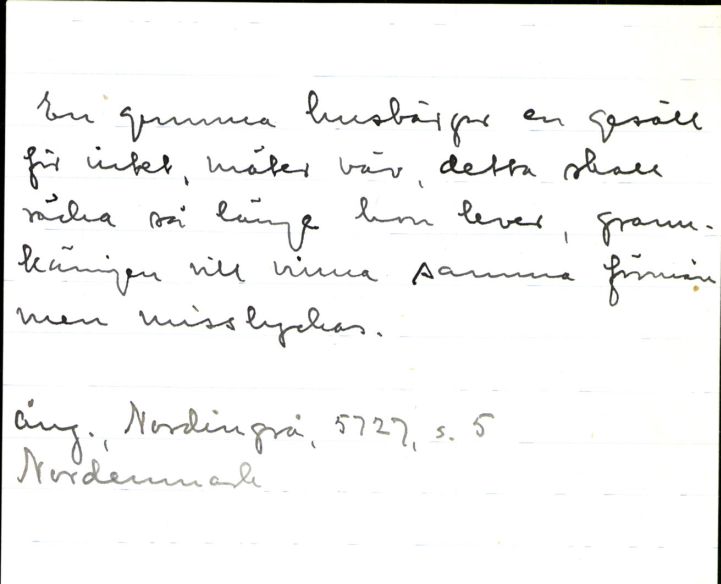 En gumma husbärger en gesäll
för intet, mäter väv, detta skall
räcka så länge hon lever, grann-
käringen vill vinna samma förmån
men misslyckas.
Ång., Nordingrå, 5727, s. 5
Nordenmark